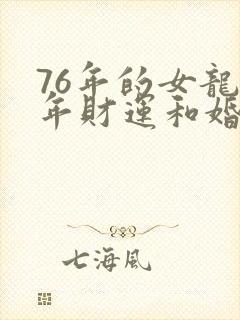 76年的女龍
年財運和婚
七海風